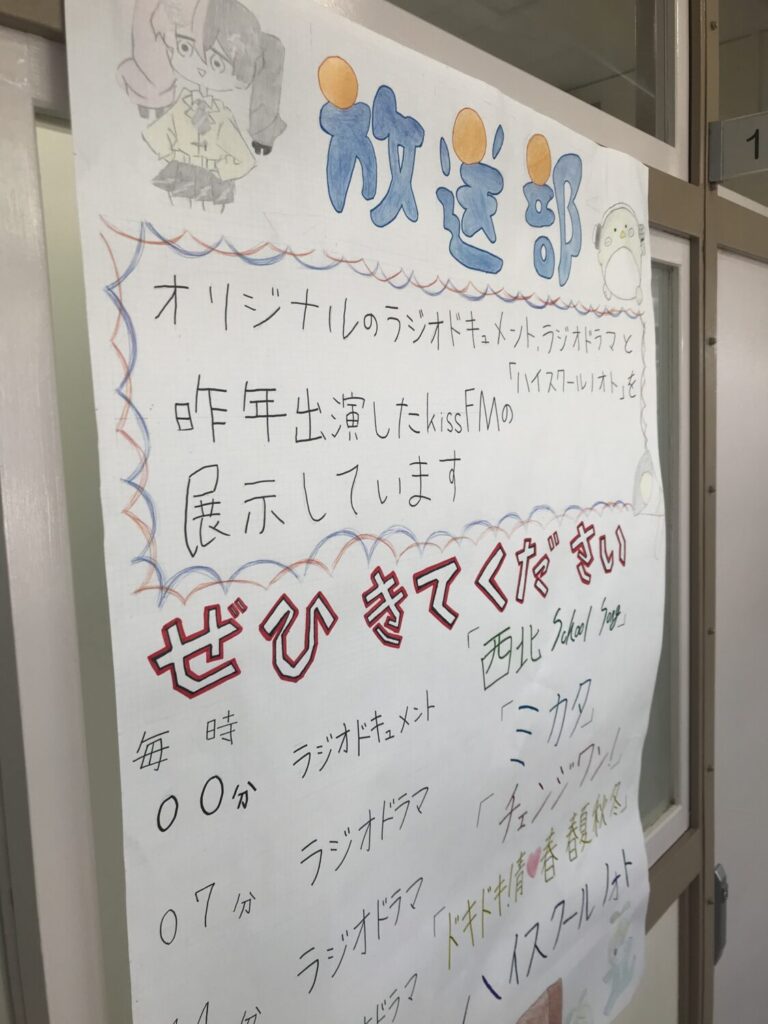 放送部
オリジナルのラジオドキュメント、ラジオドラマと
昨年出演したkissFMの「ハイスクールノオト」を
展示しています
ぜひきてください
毎時
00分 ラジオドキュメント 「西北 School Song」
07分 ラジオドラマ 「ミカタ」
ラジオドラマ 「チェンジワン!」
分 ラジオドラマ 「ドキドキ!情♥春 春夏秋冬」
ハイスクールノォト
1